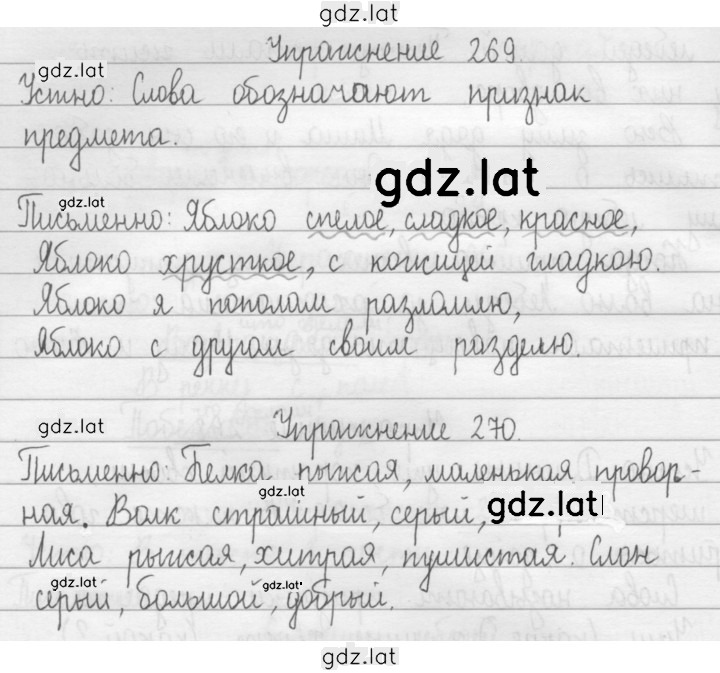 gdz.lat
Упражнение 269.
gdz.lat
Устно: Слова обозначают признак
предмета.
gdz.lat
Письменно: Яблоко спелое, сладкое, красное,
Яблоко хрусткое, с кожицей гладкою,
Яблоко я пополам разломлю,
Яблоко с другом своим разделю.
gdz.lat
Упражнение 270.
Письменно: Белка рыжая, маленькая провор-
gdz.lat
ная. Волк страшный, серый,
gdz.lat
Лиса рыжая, хитрая, пушистая. Слон
gdz.lat gdz.lat
серый, большой, добрый.
gdz.lat